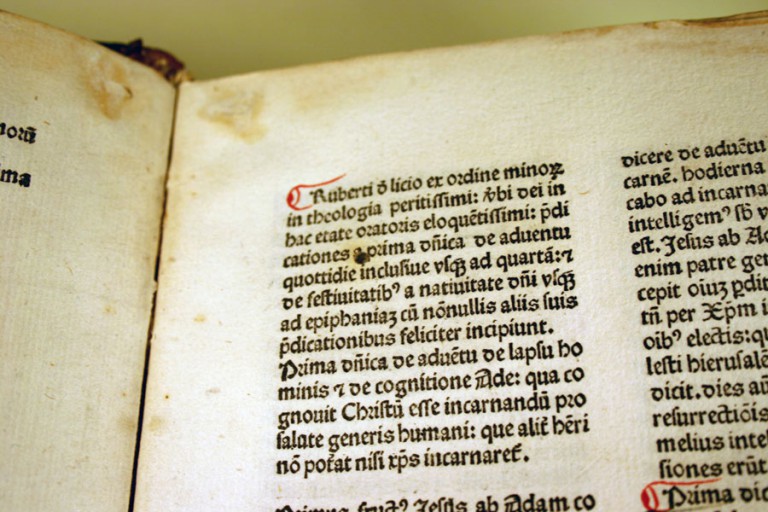 norū
ima
Ruberti ď licio ex ordine minoꝝ
in theologia peritissimi: v̓bi dei in
hac etate oratoris eloquētissimi: p̄di
cationes a prima dn̄ica de aduentu
quottidie inclusiue vsqꝫ ad quartā: ⁊
de festiuitatibꝰ a natiuitate dn̄i vsqꝫ
ad epiphaniaꝫ cū nōnullis aliis suis
p̄dicationibus feliciter incipiunt.
Prima dn̄ica de aduētu de lapsu ho
minis ⁊ de cognitione Ade: qua co
gnouit Christū esse incarnandū pro
salute generis humani: que alit̓ hēri
nō potat̓ nisi xp̄s incarnaret̓.
Jesus ab Adam co
dicere de aduētu
carnē. hodierna
cabo ad incarna
intelligemꝰ sb̓ v
est. Jesus ab Ad
enim patre gen
cepit oiuꝫ ꝑdit
tn̄ per Xp̄m i
oibꝰ electis: qu
lesti hierusalē
dicit. dies aū
resurrectiōis
melius intel
siones erūt
Prima dic